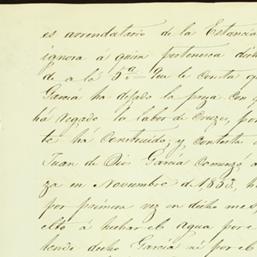 es arrendatario de la Estancia
ignora á quien pertenesca dich
d a la 5ª Que le consta q
Garcia ha dejado la presa con q
há regado la labor de Cruzo, por
te há construido, y contesta
Juan de Dios Garcia Comenzó á
za en Noviembre de 1853, h
por primera vez en dicho mes,
elto á hechar el agua por e
tendo dicho Garcia ni por el